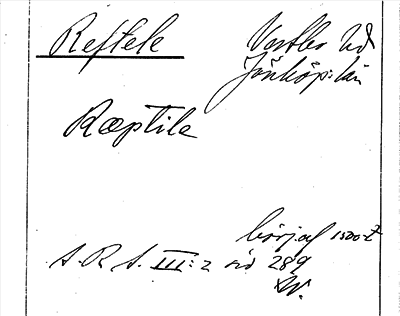 Reftele Vestbo hd
Jönköp: län
Ræptile
börj. af 1500 t.
S. R. S. III: 2 sid 289
W.